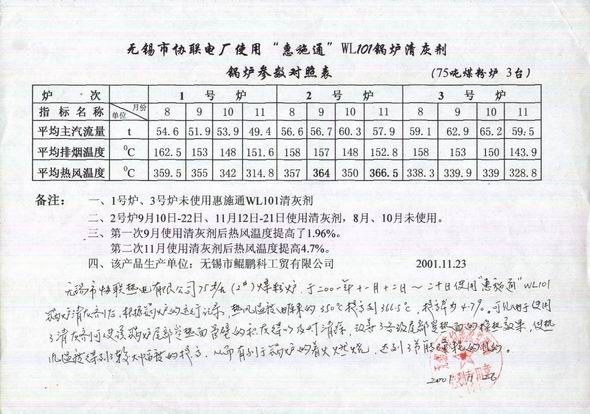 无锡市协联电厂使用“惠施通”WL101锅炉清灰剂
锅炉参数对照表 (75吨煤粉炉 3台)
炉 次 1 号 炉 2 号 炉 3 号 炉
指 标 名 称 单位 月份 8 9 10 11 8 9 10 11 8 9 10 11
平均主汽流量 t 54.6 51.9 53.9 49.4 56.6 56.7 60.3 57.9 59.1 62.9 65.2 59.5
平均排烟温度 ⁰C 162.5 153 148 151.6 158 157 148 152.8 158 153 150 143.9
平均热风温度 ⁰C 359.5 355 342 314.8 357 364 350 366.5 338.3 339.9 339 328.8
备注: 一、1号炉、3号炉未使用惠施通WL101清灰剂
二、2号炉9月10日-22日、11月12日-21日使用清灰剂，8月、10月未使用。
三、第一次9月使用清灰剂后热风温度提高了1.96%。
第二次11月使用清灰剂后热风温度提高4.7%。
四、该产品生产单位：无锡市鲲鹏科工贸有限公司 2001.11.23
无锡市协联热电有限公司75吨 (2#) 煤粉炉，于二00一年十一月十二日～二十日使用“惠施通”WL101
锅炉清灰剂后，根据锅炉的运行记录，热风温度由原来的350℃提高到366.5℃，提高率为4.7%。可见由于使用
了清灰剂可使锅炉尾部受热面管壁的积灰得以及时清除，改善了各级尾部受热面的换热效果，使热
风温度得到较大幅度的提高，从而有利于锅炉的着火燃烧，达到了节能降耗的目的。
2001.11.26